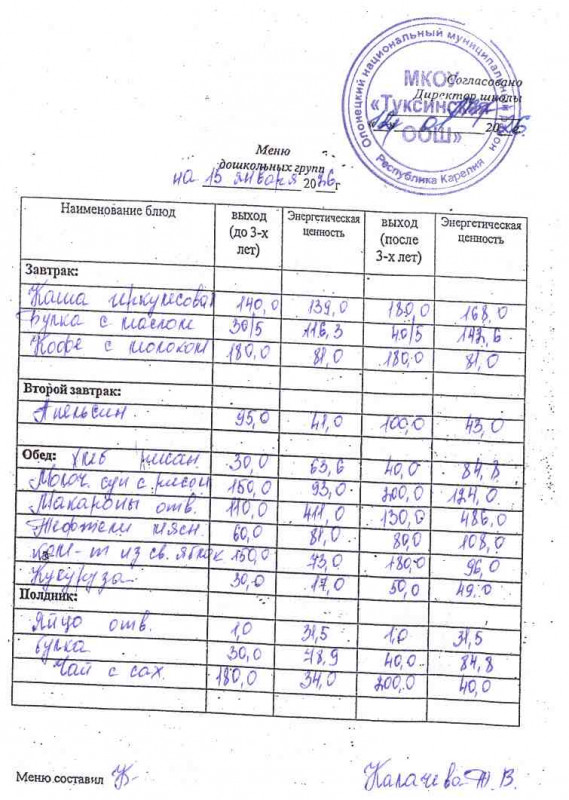 Согласовано
Директор школы
Олонецкий национальный муниципальный
Республика Карелия
МКОУ
«Туксинская
ООШ»
2026
Меню
дошкольных групп
на 15 января 2026г
Наименование блюд выход (до 3-х лет) Энергетическая ценность выход (после 3-х лет) Энергетическая ценность
Завтрак:
Каша геркулесовая 140,0 139,0 180,0 168,0
Булка с маслом 30/5 116,3 40/5 142,6
Кофе с молоком 180,0 81,0 180,0 81,0
Второй завтрак:
Апельсин 95,0 41,0 100,0 43,0
Обед: Хлеб ржан. 30,0 63,6 40,0 84,8
Молоч. суп с рисом 150,0 93,0 200,0 124,0
Макароны отв. 110,0 411,0 130,0 486,0
Тефтели мясн. 60,0 81,0 80,0 108,0
Ком-т из св. яблок 150,0 73,0 180,0 96,0
Кукуруза 30,0 17,0 50,0 49,0
Полдник:
Яйцо отв. 1,0 31,5 1,0 31,5
Булка 30,0 78,9 40,0 84,8
Чай с сах. 180,0 34,0 200,0 40,0
Меню составил Калачева Т.В.